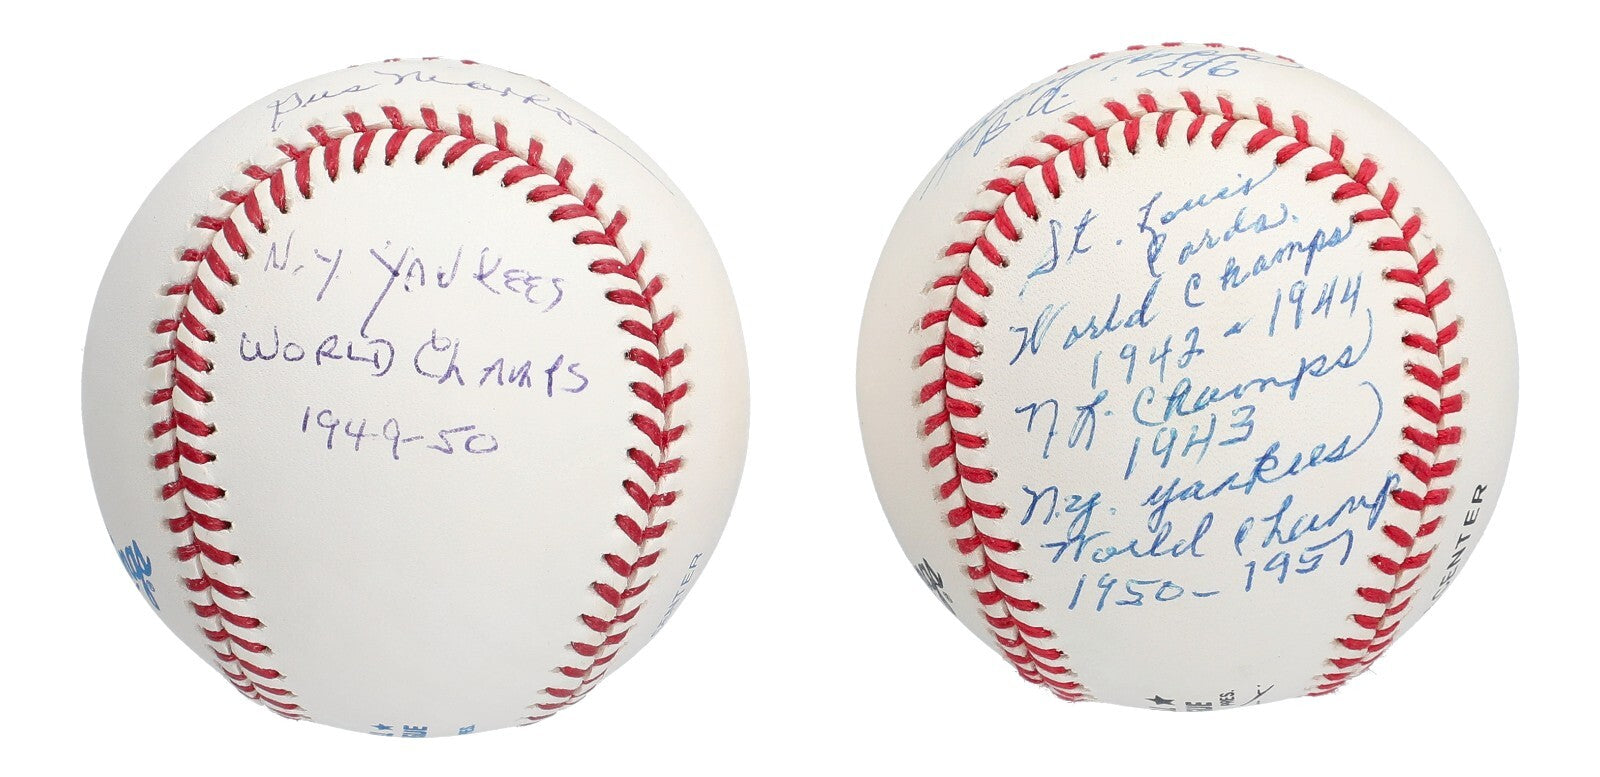 Gus
N.Y. YANKEES
WORLD CHAMPS
1949-50
TER
B.A. .296
St. Louis
Cards.
World Champs
1942 & 1944
N L. Champs
1943
N.Y. Yankees
World Champ
1950-1951
CENTER